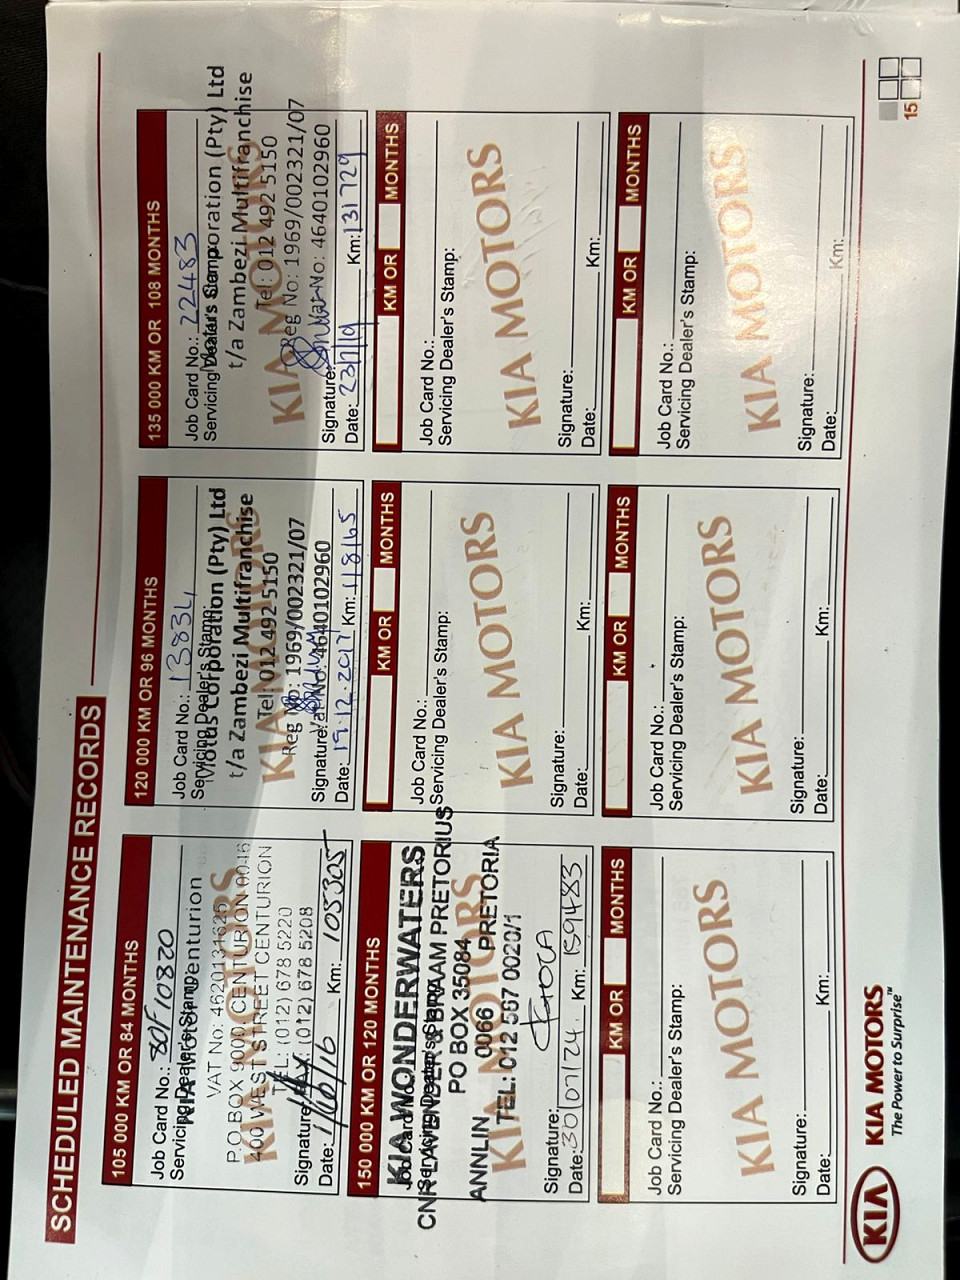 SCHEDULED MAINTENANCE RECORDS
105 000 KM OR 84 MONTHS
Job Card No.: 80F10820
Servicing Dealer's Stamp:
KIA Motors Centurion
VAT No: 4620131620
P.O.BOX 9000, CENTURION 0046
400 WEST STREET CENTURION
TEL: (012) 678 5220
FAX: (012) 678 5208
KIA MOTORS
Signature:
Date: Km: 105305
120 000 KM OR 96 MONTHS
Job Card No.: 13834
Servicing Dealer's Stamp:
Motus Corporation (Pty) Ltd
t/a Zambezi Multifranchise
Tel: 012 492 5150
Reg No: 1969/002321/07
Vat No: 4640102960
KIA MOTORS
Signature:
Date: 19.12.2017 Km: 118165
135 000 KM OR 108 MONTHS
Job Card No.: 22483
Servicing Dealer's Stamp:
Motus Corporation (Pty) Ltd
t/a Zambezi Multifranchise
Tel: 012 492 5150
Reg No: 1969/002321/07
Vat No: 4640102960
KIA MOTORS
Signature:
Date: 23/7/19 Km: 131729
150 000 KM OR 120 MONTHS
Job Card No.:
Servicing Dealer's Stamp:
KIA WONDERWATERS
CNR LAVENDER & BRAAM PRETORIUS
PO BOX 35084
ANNLIN 0066 PRETORIA
TEL: 012 567 0020/1
KIA MOTORS
Signature:
Date: 30/07/24 Km: 159483
KM OR MONTHS
Job Card No.:
Servicing Dealer's Stamp:
KIA MOTORS
Signature:
Date: Km:
KM OR MONTHS
Job Card No.:
Servicing Dealer's Stamp:
KIA MOTORS
Signature:
Date: Km:
KM OR MONTHS
Job Card No.:
Servicing Dealer's Stamp:
KIA MOTORS
Signature:
Date: Km:
KM OR MONTHS
Job Card No.:
Servicing Dealer's Stamp:
KIA MOTORS
Signature:
Date: Km:
KM OR MONTHS
Job Card No.:
Servicing Dealer's Stamp:
KIA MOTORS
Signature:
Date: Km:
KIA
KIA MOTORS
The Power to Surprise™
15